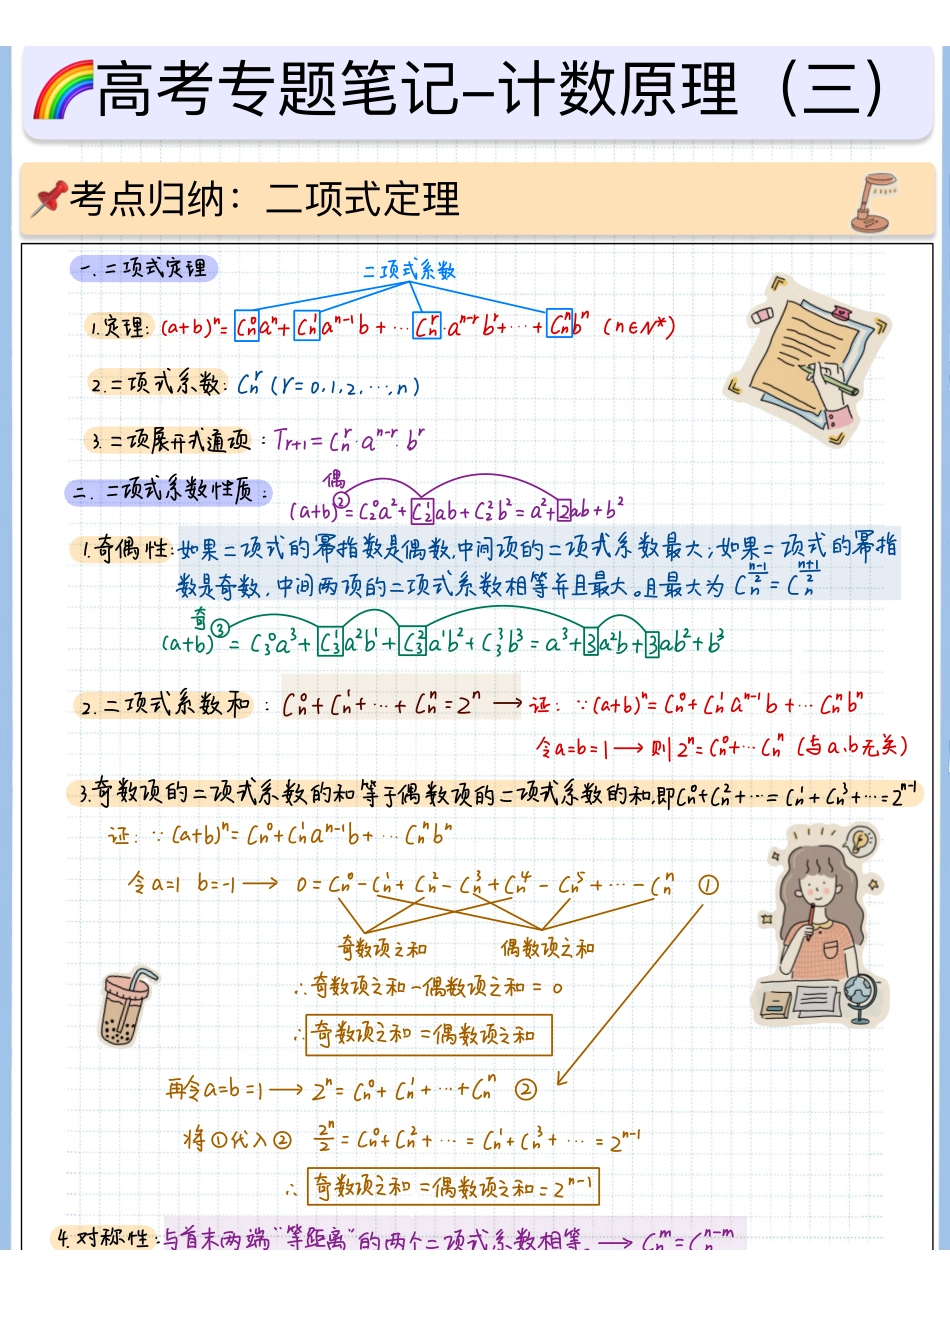 高考专题笔记-计数原理（三）
考点归纳：二项式定理
一.二项式定理
二项式系数
1.定理：(a+b)ⁿ= Cₙ⁰aⁿ+ Cₙ¹aⁿ⁻¹b + … Cₙʳ·aⁿ⁻ʳbʳ+…+ Cₙⁿbⁿ (n∈N*)
2.二项式系数：Cₙʳ (r=0,1,2,…,n)
3.二项展开式通项：Tᵣ₊₁= Cₙʳ·aⁿ⁻ʳ·bʳ
二.二项式系数性质：
偶
(a+b)²= C₂⁰a²+ C₂¹ab+C₂²b²= a²+2ab+b²
1.奇偶性：如果二项式的幂指数是偶数,中间项的二项式系数最大;如果二项式的幂指
数是奇数,中间两项的二项式系数相等并且最大。且最大为 Cₙ^((n-1)/2) = Cₙ^((n+1)/2)
奇
(a+b)³= C₃⁰a³+ C₃¹a²b¹+ C₃²a¹b²+ C₃³b³= a³+3a²b+3ab²+b³
2.二项式系数和：Cₙ⁰+Cₙ¹+…+ Cₙⁿ=2ⁿ → 证：∵(a+b)ⁿ= Cₙ⁰+Cₙ¹aⁿ⁻¹b+… Cₙⁿbⁿ
令a=b=1 → 则2ⁿ=Cₙ⁰+… Cₙⁿ (与a.b无关)
3.奇数项的二项式系数的和等于偶数项的二项式系数的和,即Cₙ⁰+Cₙ²+…= Cₙ¹+Cₙ³+…=2ⁿ⁻¹
证：∵ (a+b)ⁿ= Cₙ⁰+Cₙ¹aⁿ⁻¹b+ … Cₙⁿbⁿ
令a=1 b=-1 → 0=Cₙ⁰-Cₙ¹+ Cₙ²- Cₙ³+Cₙ⁴ - Cₙ⁵ + … - Cₙⁿ ①
奇数项之和 偶数项之和
∴奇数项之和-偶数项之和= 0
∴奇数项之和=偶数项之和
再令a=b=1 → 2ⁿ= Cₙ⁰+ Cₙ¹+ …+Cₙⁿ ②
将①代入② 2ⁿ/2 = Cₙ⁰+Cₙ²+ … = Cₙ¹+Cₙ³+ … = 2ⁿ⁻¹
∴ 奇数项之和=偶数项之和=2ⁿ⁻¹
4.对称性：与首末两端“等距离”的两个二项式系数相等。→ Cₙᵐ=Cₙⁿ⁻ᵐ